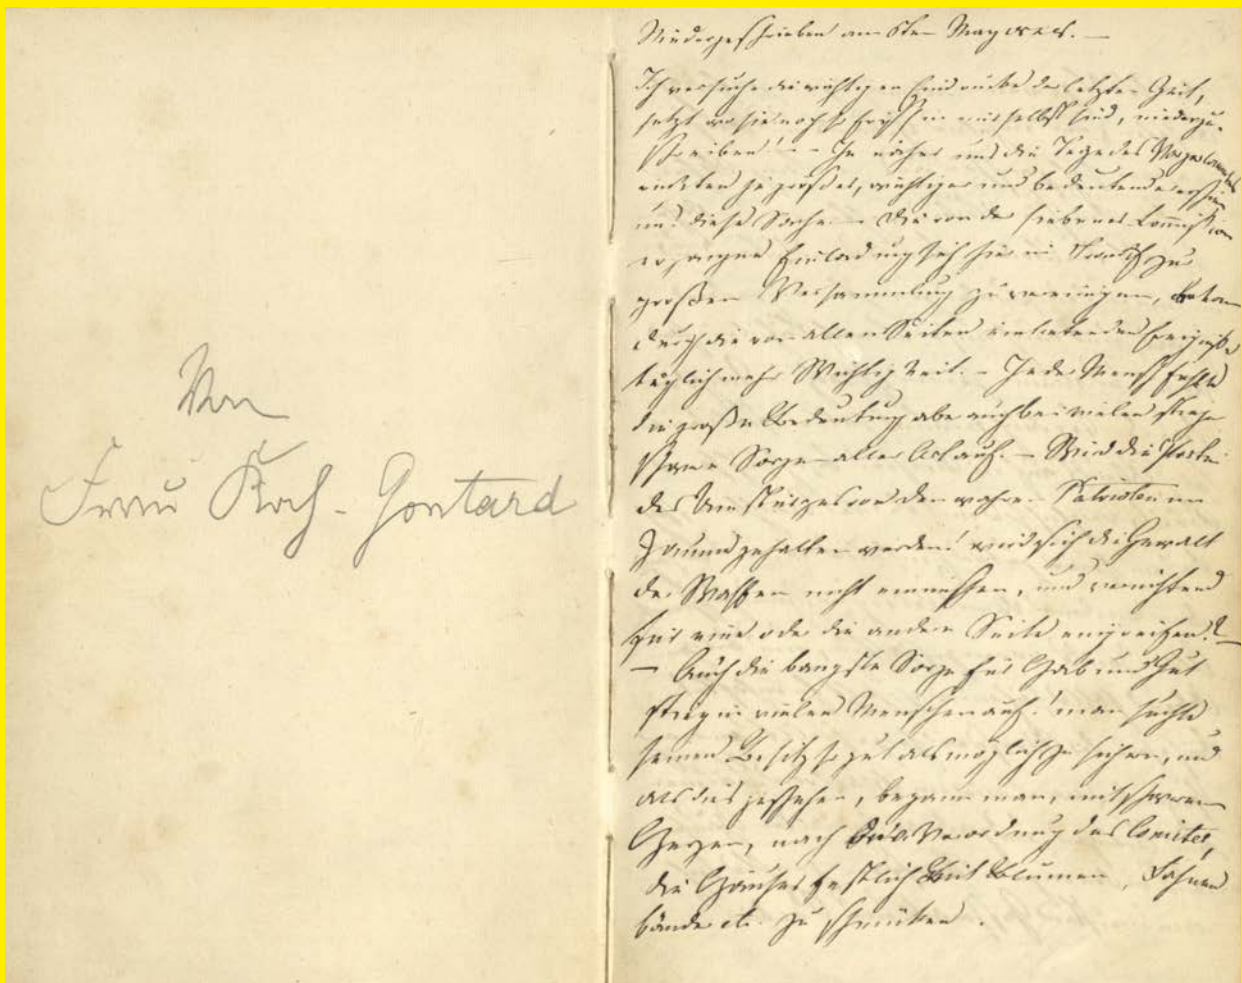 Von
Frau Koch-Gontard
Niedergeschrieben am 6ten May 1848. —
Ich versuche die wichtigen Eindrücke der letzten Zeit,
jetzt wo sie noch so frisch in mir selbst sind, niederzu-
schreiben! — Je näher uns die Tage des Vorparlaments
rückten je größer, wichtiger und bedeutender erschien
uns diese Sache. — Die von der siebener Commission
ergangene Einladung sich hier in Frankf zur
großen Versammlung zu vereinigen, bekam
durch die von allen Seiten eintretenden Ereignisse
täglich mehr Wichtigkeit. — Jeder Mensch fühlte
die große Bedeutung aber auch bei vielen stiegen
schwere Sorgen aller Art auf. — Wird die Parthei
des Umsturzes von den wahren Patrioten im
Zaum gehalten werden! wird sich die Gewalt
der Waffen nicht einmischen, und vernichtend
für eine oder die andere Seite eingreifen? —
— Auch die bangste Sorge für Hab und Gut
stieg in vielen Menschen auf! man suchte
seinen Besitz so gut als möglich zu sichern, und
als dies geschehen, begann man, mit schwerem
Herzen, nach der Verordnung des Comites,
die Häuser festlich mit Blumen, Fahnen
bänder etc. zu schmücken.